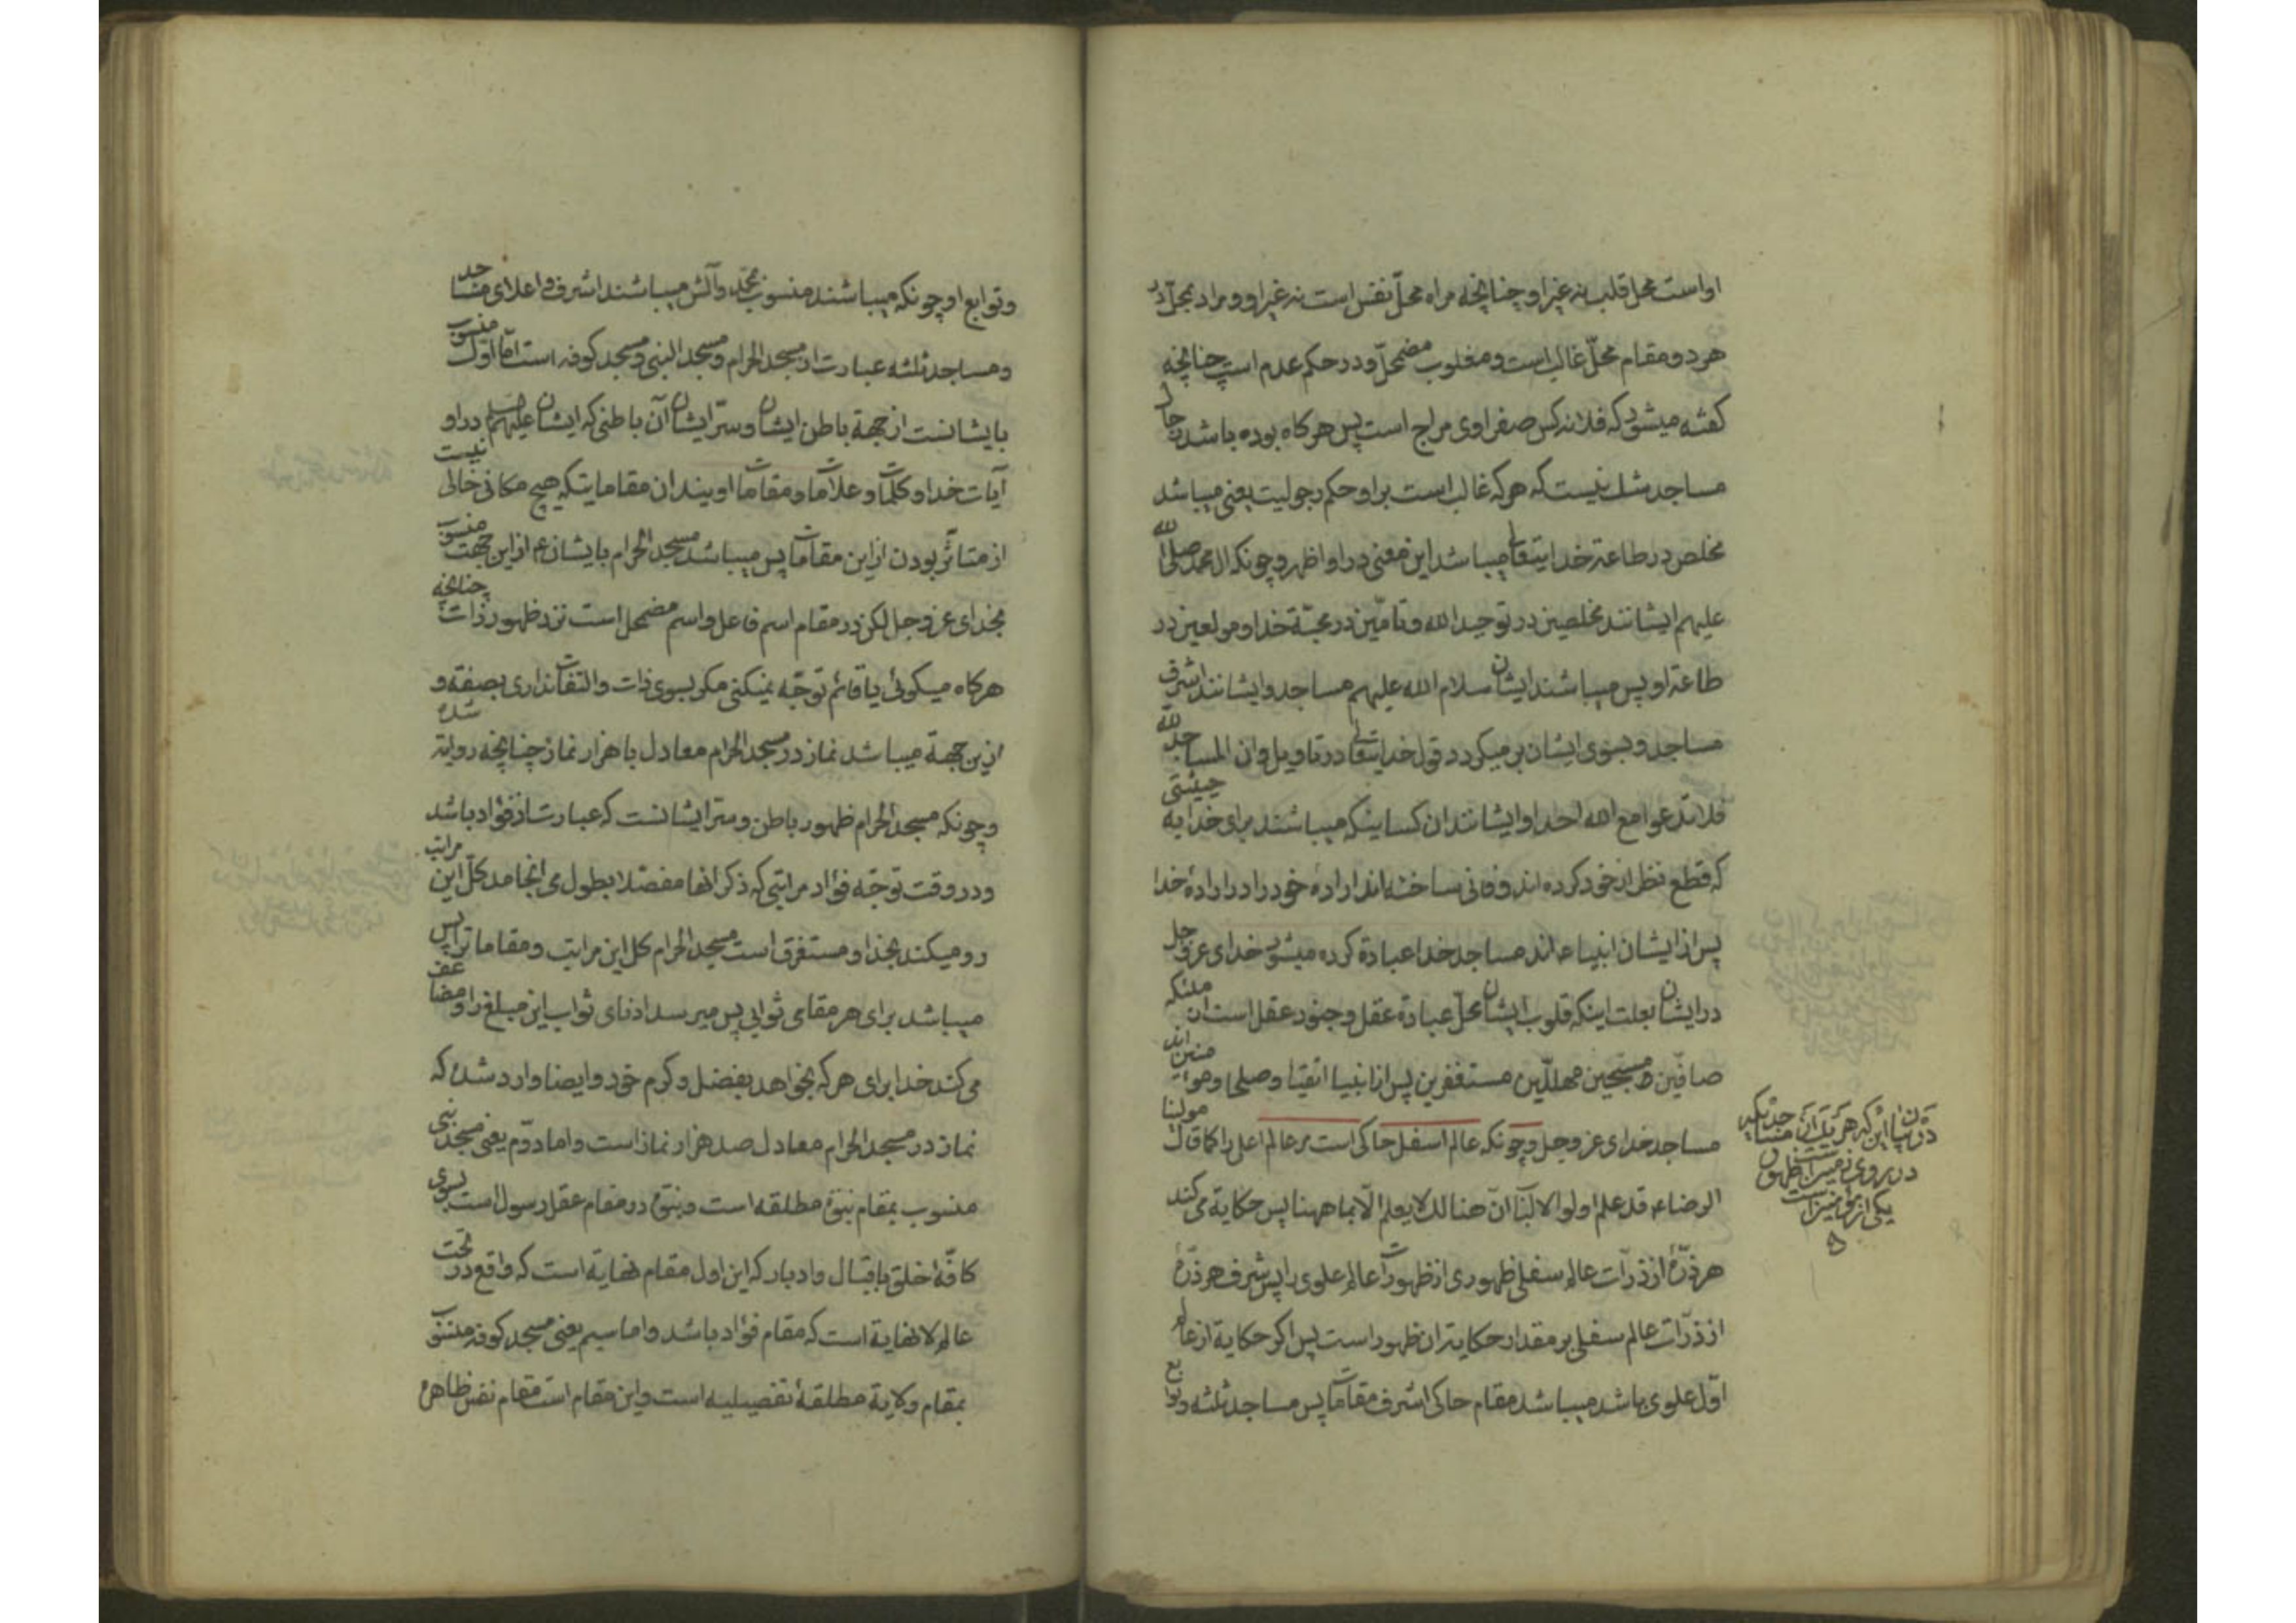 اواست محل قلب نه غیر او چنانچه مراه محلّ نفس است نه غیر او و مراد بمحلّ در
هر دو مقام محلّ غالب است و مغلوب مضمحلّ و در حکم عدم است چنانچه
کفته میشود که فلانه کس صفراوی مزاج است پس هر کاه بوده باشد حال
مساجد مثل نیست که هر که غالب است بر او حکم رجولیت یعنی میباشد
مخلص در طاعة خدایتعالی میباشد این معنی در او اظهر و چونکه ال محمد صلی الله
علیهم ایشانند مخلصین در توحید الله و تامّین در محبّة خدا و مولعین در
طاعة او پس میباشند ایشان سلام الله علیهم مساجد و ایشانند اشرف
مساجد و بسوی ایشان بر میکردد قول خدایتعالی در تاویل وان المساجد لله
فلا تدعوا مع الله احدا و ایشانند ان کساینکه میباشند برای خدا به حیثیتی
که قطع نظر از خود کرده اند و فانی ساخته اند اراده خود را در ارادهٔ خدا
پس از ایشان انبیاء اند مساجد خدا عبادة کرده میشود خدای عزوجل
در ایشان بعلت اینکه قلوب ایشان محلّ عبادة عقل و جنود عقل است ان ملئکه
صافّین مسبّحین مهللّین مستغفرین پس از انبیا اتقیا و صلحا و مومنین اند
مساجد خدای عز وجل و چونکه عالم اسفل حاکی است مر عالم اعلی را کما قال مولینا
الرضاء قد علم اولوا الالباب انّ هنالک لا یعلم الّا بما ههنا پس حکایة می کند
هر ذرّهٔ از ذرّات عالم سفلی ظهوری از ظهورات عالم علوی را پس شرف هر ذرّهٔ
از ذرّات عالم سفلی بر مقدار حکایة ان ظهور است پس اکر حکایة از عالم
اوّل علوی باشد میباشد مقام حاکی اشرف مقامات پس مساجد ثلثه و توابع
در روی زمین است ظهور
یکی از
و توابع او چونکه میباشند منسوب بمحمّد و آلش میباشند اشرف و اعلای مساجد
و مساجد ثلثه عبارت از مسجد الحرام و مسجد النبی و مسجد کوفه است امّا اوّل منسوب
بایشانست از جهة باطن ایشان و سرّ ایشان آن باطنی که ایشان علیهم السلم در او
آیات خدا و کلمات و علامات و مقامات اویند ان مقاماتیکه هیچ مکانی خالی نیست
از متاثّر بودن از این مقامات پس میباشد مسجد الحرام بایشان ع از این جهت منسوب
بخدای عز وجل لکن در مقام اسم فاعل و اسم مضمحل است نزد ظهور ذات چنانچه
هر کاه میکوئی یا قائم توجّه نمیکنی مکر بسوی ذات و التفات نداری بصفة و
از این جهة میباشد نماز در مسجد الحرام معادل با هزار نماز چنانچه روایة شده
و چونکه مسجد الحرام ظهور باطن و سرّ ایشانست که عبارت از فؤاد باشد
و در وقت توجّه فؤاد مراتبی که ذکر انها مفصّلا بطول می انجامد کلّ این مراتب
رو میکند بخدا و مستغرق است مسجد الحرام کل این مراتب و مقامات را پس
میباشد برای هر مقامی ثوابی پس میرسد ادنای ثواب این مبلغ را و مضاعف
می کند خدا برای هر که بخواهد بفضل و کرم خود و ایضا وارد شده که
نماز در مسجد الحرام معادل صد هزار نماز است و اما دوّم یعنی مسجد نبی
منسوب بمقام نبوّة مطلقه است و نبوّة در مقام عقل رسول است بسوی
کافّهٔ خلق باقبال و ادبار که این اول مقام نهایة است که واقع در تحت
عالم لا نهایة است که مقام فؤاد باشد و اما سیم یعنی مسجد کوفه منسوب
بمقام ولایة مطلقهٔ تفصیلیه است و این مقام است مقام نفس ظاهره